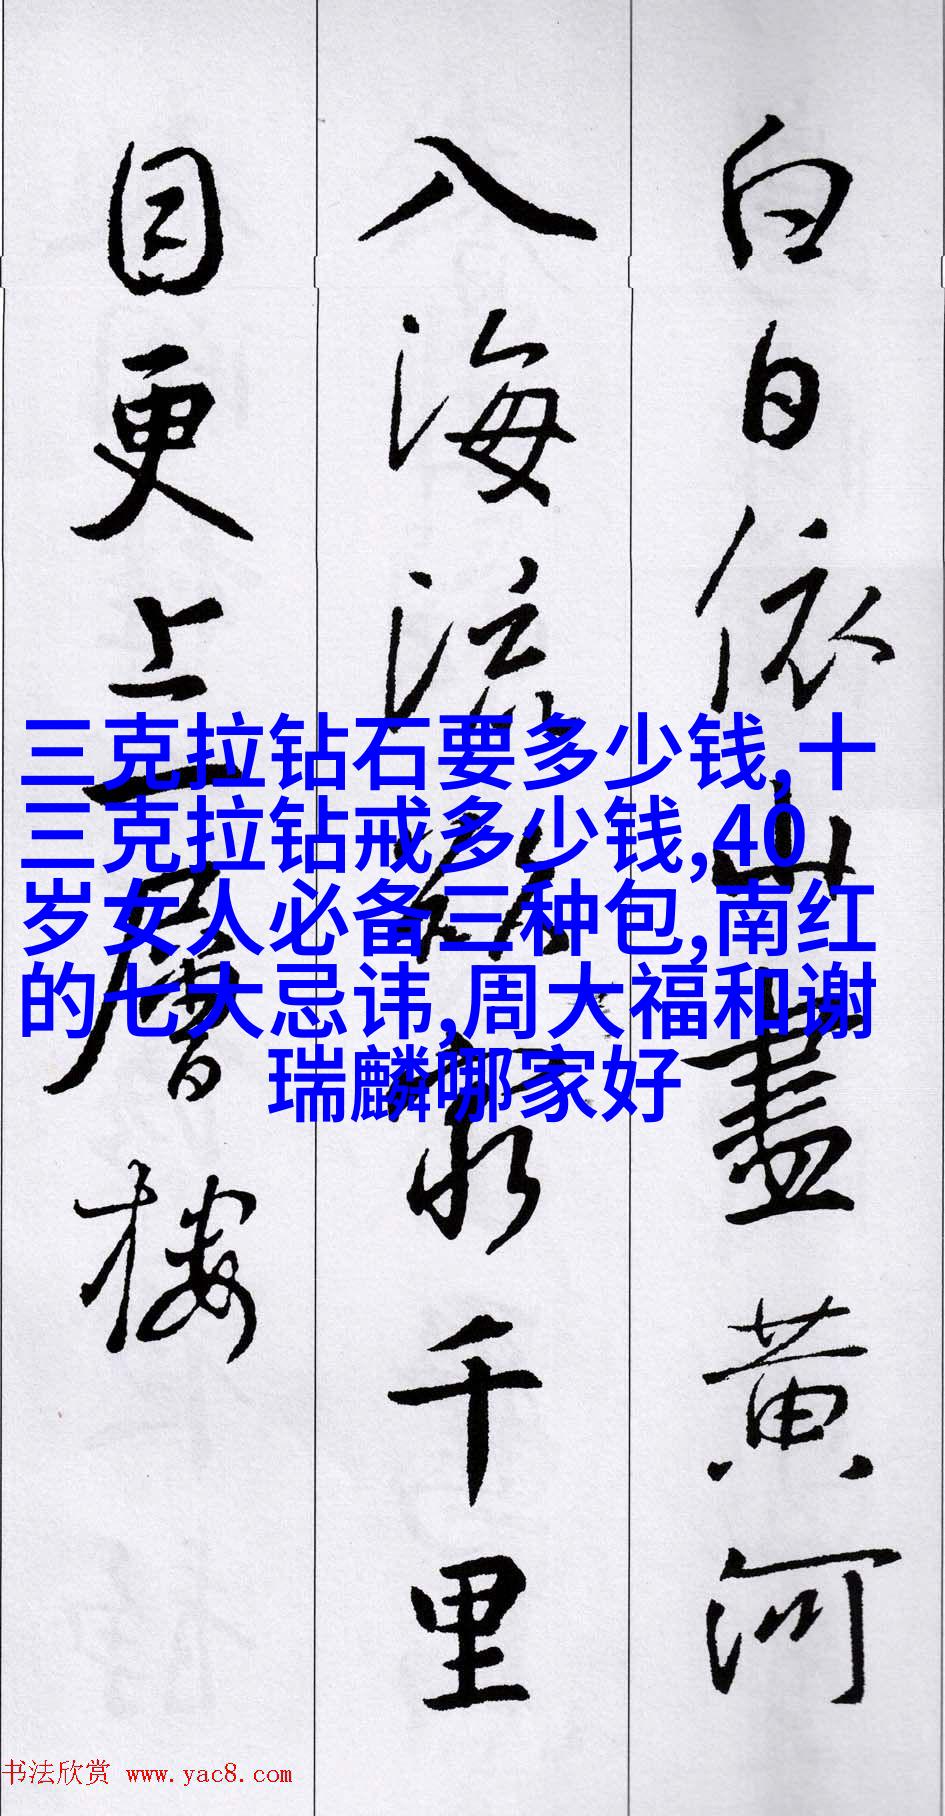 白日依山盡黄河
入海流欲窮千里
目更上一層樓
三克拉钻石要多少钱,十
三克拉钻戒多少钱,40
岁女人必备三种包,南红
的七大忌讳,周大福和谢
瑞麟哪家好
书法欣赏 www.yac8.com